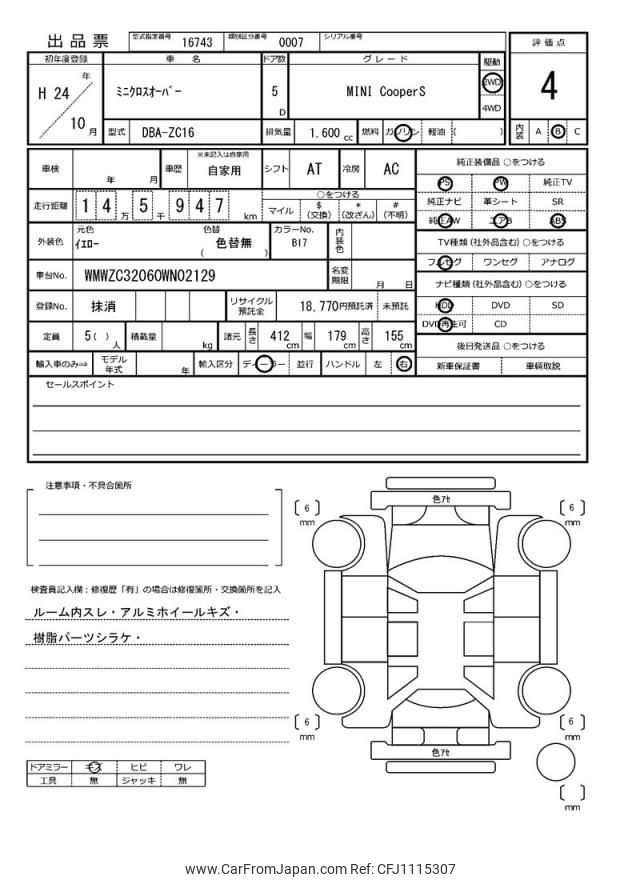 出品票 型式指定番号 16743 類別区分番号 0007 シリアル番号
評価点
4
内装 A B C
初年度登録 車名 ドア数 グレード 駆動
H 24 年 10 月
ミニクロスオーバー 5 D MINI CooperS 2WD 4WD
型式 DBA-ZC16 排気量 1,600 cc 燃料 ガソリン 軽油 ( )
車検 年 月 車歴 ※未記入は自家用 自家用 シフト AT 冷房 AC
走行距離 1 4 万 5 千 9 4 7 km
○をつける
マイル $(交換) *(改ざん) #(不明)
外装色 元色 イエロー 色替 ( 色替無 ) カラーNo. B17 内装色
車台No. WMWZC32060WN02129 名変期限 月 日
登録No. 抹消 リサイクル預託金 18,770円預託済 未預託
定員 5( ) 人 積載量 kg 諸元 長さ 412 cm 幅 179 cm 高さ 155 cm
輸入車のみ⇒ モデル年式 年 輸入区分 ディーラー 並行 ハンドル 左 右
純正装備品 ○をつける
PS PW 純正TV
純正ナビ 革シート SR
純正AW エアB ABS
TV種類(社外品含む) ○をつける
フルセグ ワンセグ アナログ
ナビ種類(社外品含む) ○をつける
HDD DVD SD
DVD再生可 CD
後日発送品 ○をつける
新車保証書 車輌取説
セールスポイント
注意事項・不具合箇所
検査員記入欄:修復歴「有」の場合は修復箇所・交換箇所を記入
ルーム内スレ・アルミホイールキズ・
樹脂パーツシラケ・
ドアミラー キズ ヒビ ワレ
工具 無 ジャッキ 無
色アセ
6 mm
6 mm
6 mm
6 mm
色アセ
mm
www.CarFromJapan.com Ref: CFJ1115307